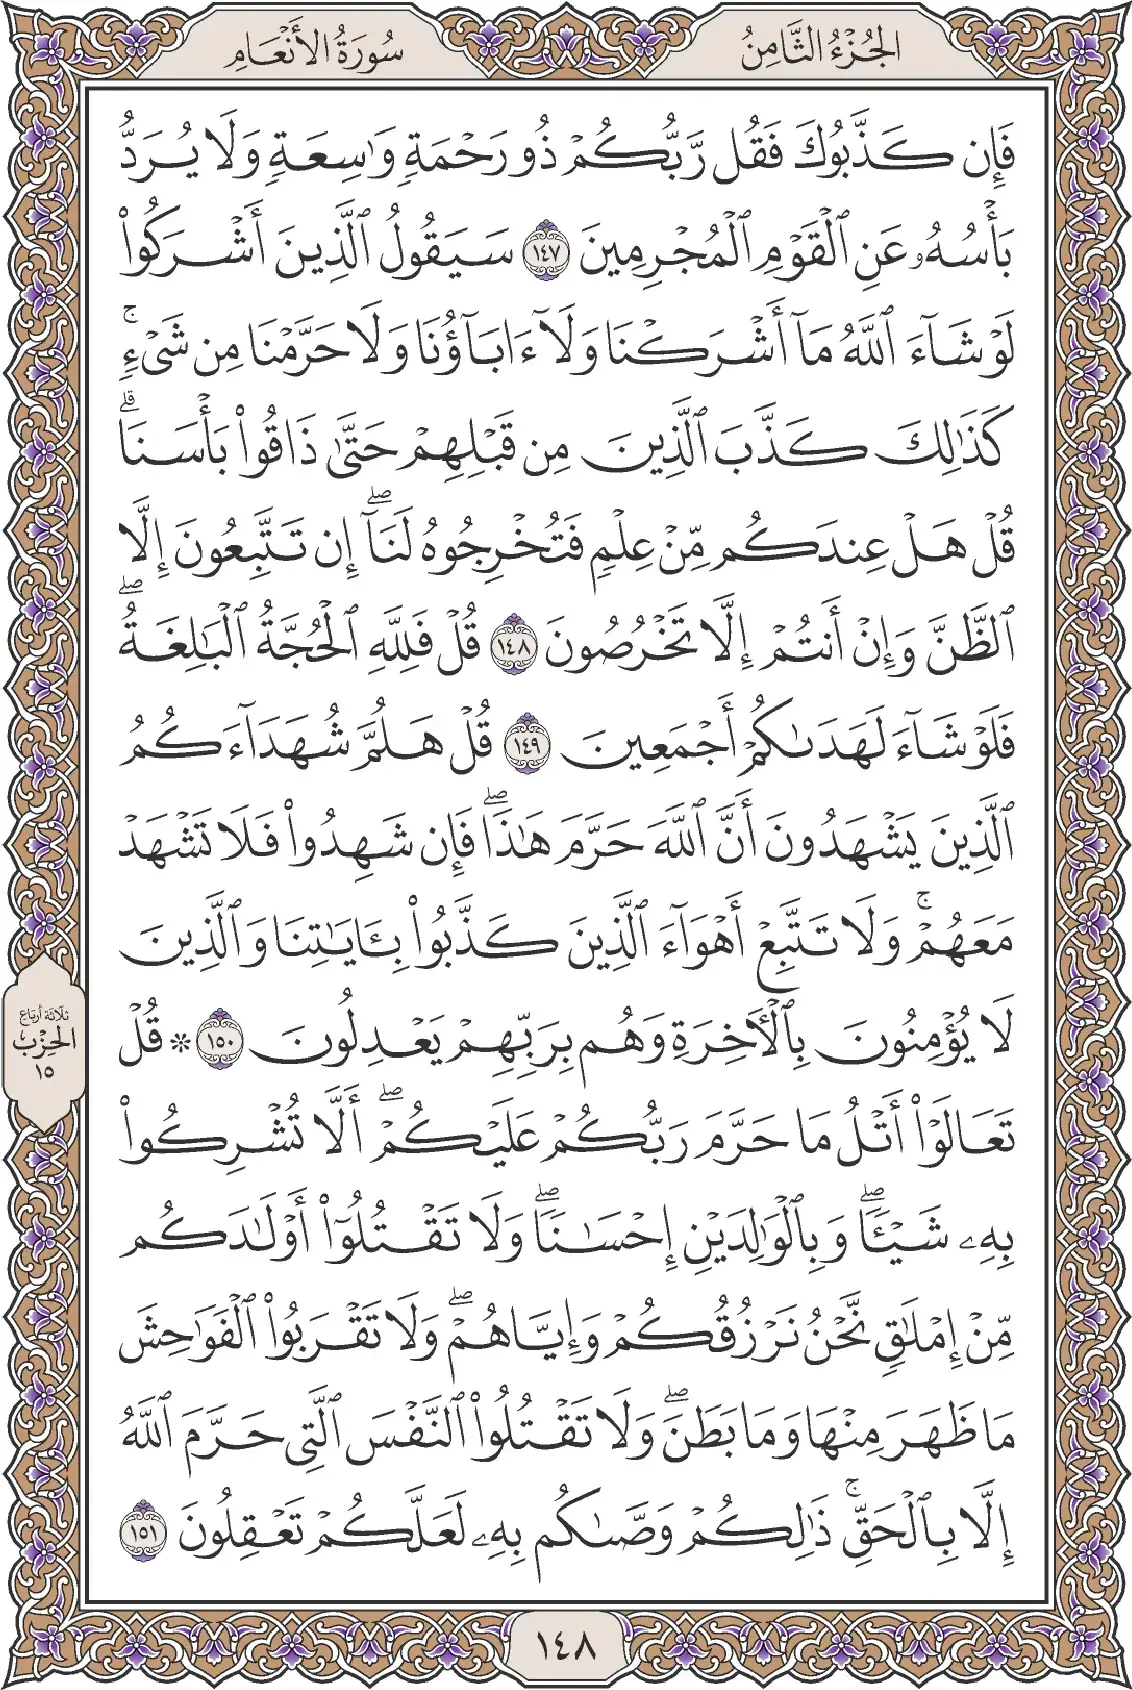 الجُزْءُ الثَّامِنُ
سُورَةُ الأَنْعَامِ
فَإِن كَذَّبُوكَ فَقُل رَّبُّكُمْ ذُو رَحْمَةٍ وَٰسِعَةٍ وَلَا يُرَدُّ
بَأْسُهُۥ عَنِ ٱلْقَوْمِ ٱلْمُجْرِمِينَ ١٤٧ سَيَقُولُ ٱلَّذِينَ أَشْرَكُوا۟
لَوْ شَآءَ ٱللَّهُ مَآ أَشْرَكْنَا وَلَآ ءَابَآؤُنَا وَلَا حَرَّمْنَا مِن شَىْءٍۚ
كَذَٰلِكَ كَذَّبَ ٱلَّذِينَ مِن قَبْلِهِمْ حَتَّىٰ ذَاقُوا۟ بَأْسَنَاۗ
قُلْ هَلْ عِندَكُم مِّنْ عِلْمٍ فَتُخْرِجُوهُ لَنَآۖ إِن تَتَّبِعُونَ إِلَّا
ٱلظَّنَّ وَإِنْ أَنتُمْ إِلَّا تَخْرُصُونَ ١٤٨ قُلْ فَلِلَّهِ ٱلْحُجَّةُ ٱلْبَٰلِغَةُۖ
فَلَوْ شَآءَ لَهَدَىٰكُمْ أَجْمَعِينَ ١٤٩ قُلْ هَلُمَّ شُهَدَآءَكُمُ
ٱلَّذِينَ يَشْهَدُونَ أَنَّ ٱللَّهَ حَرَّمَ هَٰذَاۖ فَإِن شَهِدُوا۟ فَلَا تَشْهَدْ
مَعَهُمْۚ وَلَا تَتَّبِعْ أَهْوَآءَ ٱلَّذِينَ كَذَّبُوا۟ بِـَٔايَٰتِنَا وَٱلَّذِينَ
لَا يُؤْمِنُونَ بِٱلْـَٔاخِرَةِ وَهُم بِرَبِّهِمْ يَعْدِلُونَ ١٥٠ * قُلْ
تَعَالَوْا۟ أَتْلُ مَا حَرَّمَ رَبُّكُمْ عَلَيْكُمْۖ أَلَّا تُشْرِكُوا۟
بِهِۦ شَيْـًٔاۖ وَبِٱلْوَٰلِدَيْنِ إِحْسَٰنًاۖ وَلَا تَقْتُلُوٓا۟ أَوْلَٰدَكُم
مِّنْ إِمْلَٰقٍ نَّحْنُ نَرْزُقُكُمْ وَإِيَّاهُمْۖ وَلَا تَقْرَبُوا۟ ٱلْفَوَٰحِشَ
مَا ظَهَرَ مِنْهَا وَمَا بَطَنَۖ وَلَا تَقْتُلُوا۟ ٱلنَّفْسَ ٱلَّتِى حَرَّمَ ٱللَّهُ
إِلَّا بِٱلْحَقِّۚ ذَٰلِكُمْ وَصَّىٰكُم بِهِۦ لَعَلَّكُمْ تَعْقِلُونَ ١٥١
ثلاثة أرباع
الحِزْب
١٥
١٤٨